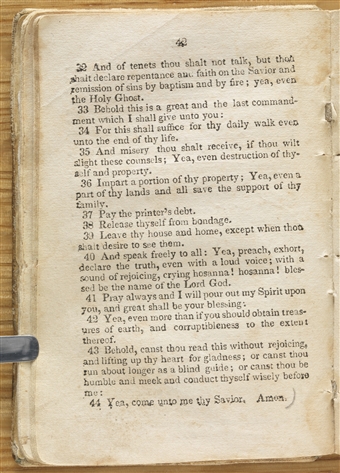 42
32 And of tenets thou shalt not talk, but thou
shalt declare repentance and faith on the Savior and
remission of sins by baptism and by fire; yea, even
the Holy Ghost.
33 Behold this is a great and the last command-
ment which I shall give unto you:
34 For this shall suffice for thy daily walk even
unto the end of thy life.
35 And misery thou shalt receive, if thou wilt
slight these counsels; Yea, even destruction of thy-
self and property.
36 Impart a portion of thy property; Yea, even a
part of thy lands and all save the support of thy
family.
37 Pay the printer's debt.
38 Release thyself from bondage.
39 Leave thy house and home, except when thou
shalt desire to see them.
40 And speak freely to all: Yea, preach, exhort,
declare the truth, even with a loud voice; with a
sound of rejoicing, crying hosanna! hosanna! bles-
sed be the name of the Lord God.
41 Pray always and I will pour out my Spirit upon
you, and great shall be your blessing:
42 Yea, even more than if you should obtain treas-
ures of earth, and corruptibleness to the extent
thereof.
43 Behold, canst thou read this without rejoicing,
and lifting up thy heart for gladness; or canst thou
run about longer as a blind guide; or canst thou be
humble and meek and conduct thyself wisely before
me:
44 Yea, come unto me thy Savior. Amen.